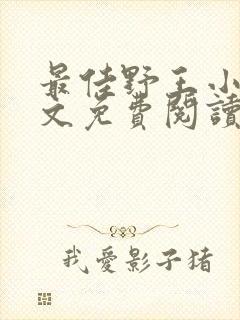 最佳野王小
文免費閱讀
我愛影子猪